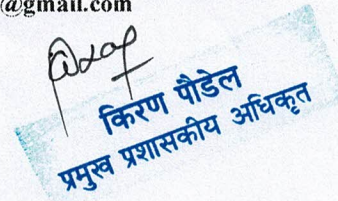 @gmail.com
किरण पौडेल
प्रमुख प्रशासकीय अधिकृत